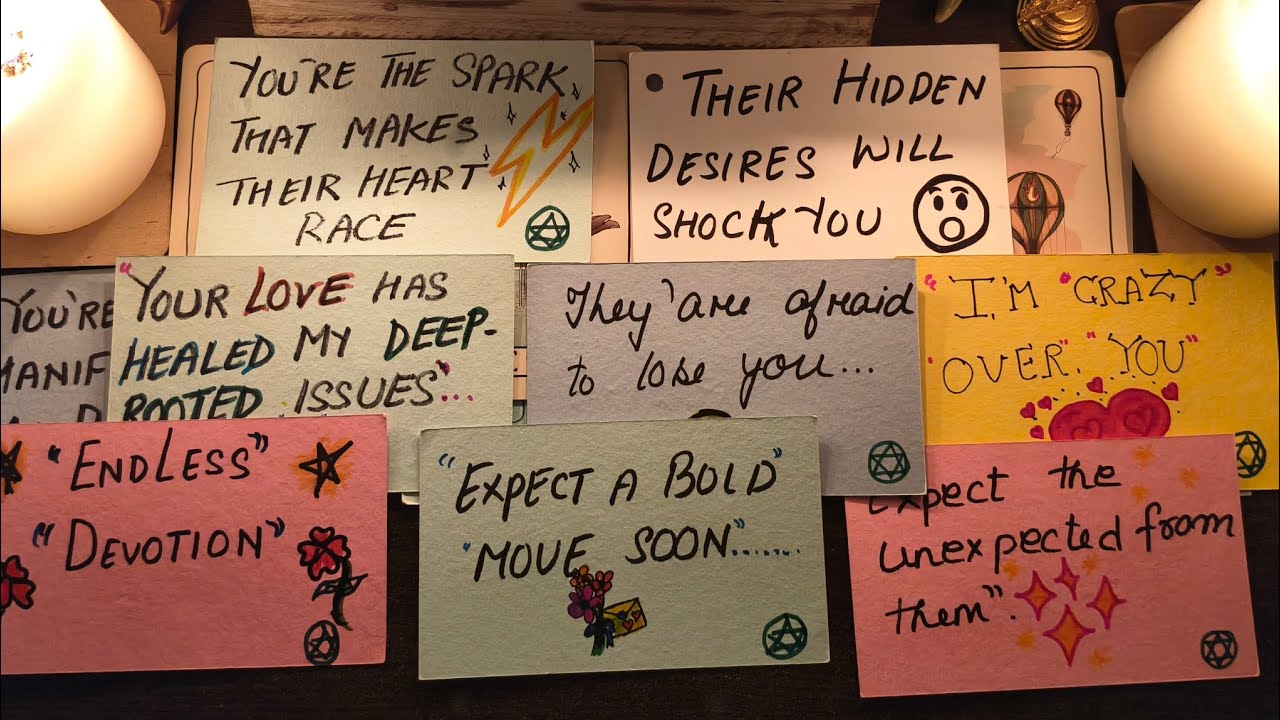 YOU'RE THE SPARK
THAT MAKES
THEIR HEART
RACE
THEIR HIDDEN
DESIRES WILL
SHOCK YOU
YOU'RE
MANIF
"YOUR LOVE HAS
HEALED MY DEEP-
ROOTED ISSUES"...
They'are afraid
to lose you...
"I,'M "CRAZY"
"OVER", "YOU"
"ENDLESS"
"DEVOTION"
"EXPECT A BOLD"
"MOVE SOON".......
Expect the
unexpected from
them".